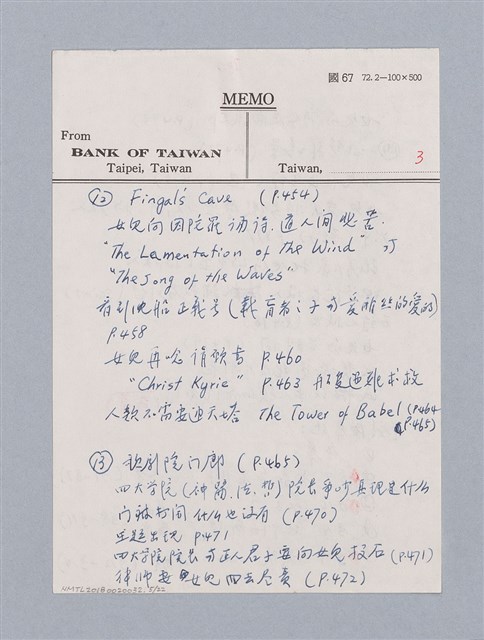 國 67 72.2—100×500
MEMO
From
BANK OF TAIWAN
Taipei, Taiwan
Taiwan,
3
⑫ Fingal's Cave (P.454)
女兒向因陀羅诵诗.道人间悲苦.
"The Lamentation of The Wind"
"The Song of the Waves"
看到沈船正義号
P.458
女兒再唸請願書 P.460
"Christ Kyrie" P.463 求救
人類不需要通天塔 The Tower of Babel (P.464
P.465)
⑬ 歌剧院门廊 (P.465)
四大学院 (神,醫,法,哲) 院長争吵真理是什么
门被打开 什么也没有 (P.470)
主题出现 P.471
四大学院院長 正人君子要向女兒投石 (P.471)
律师 女兒 尽責 (P.472)
NMTL20180020032_5/22